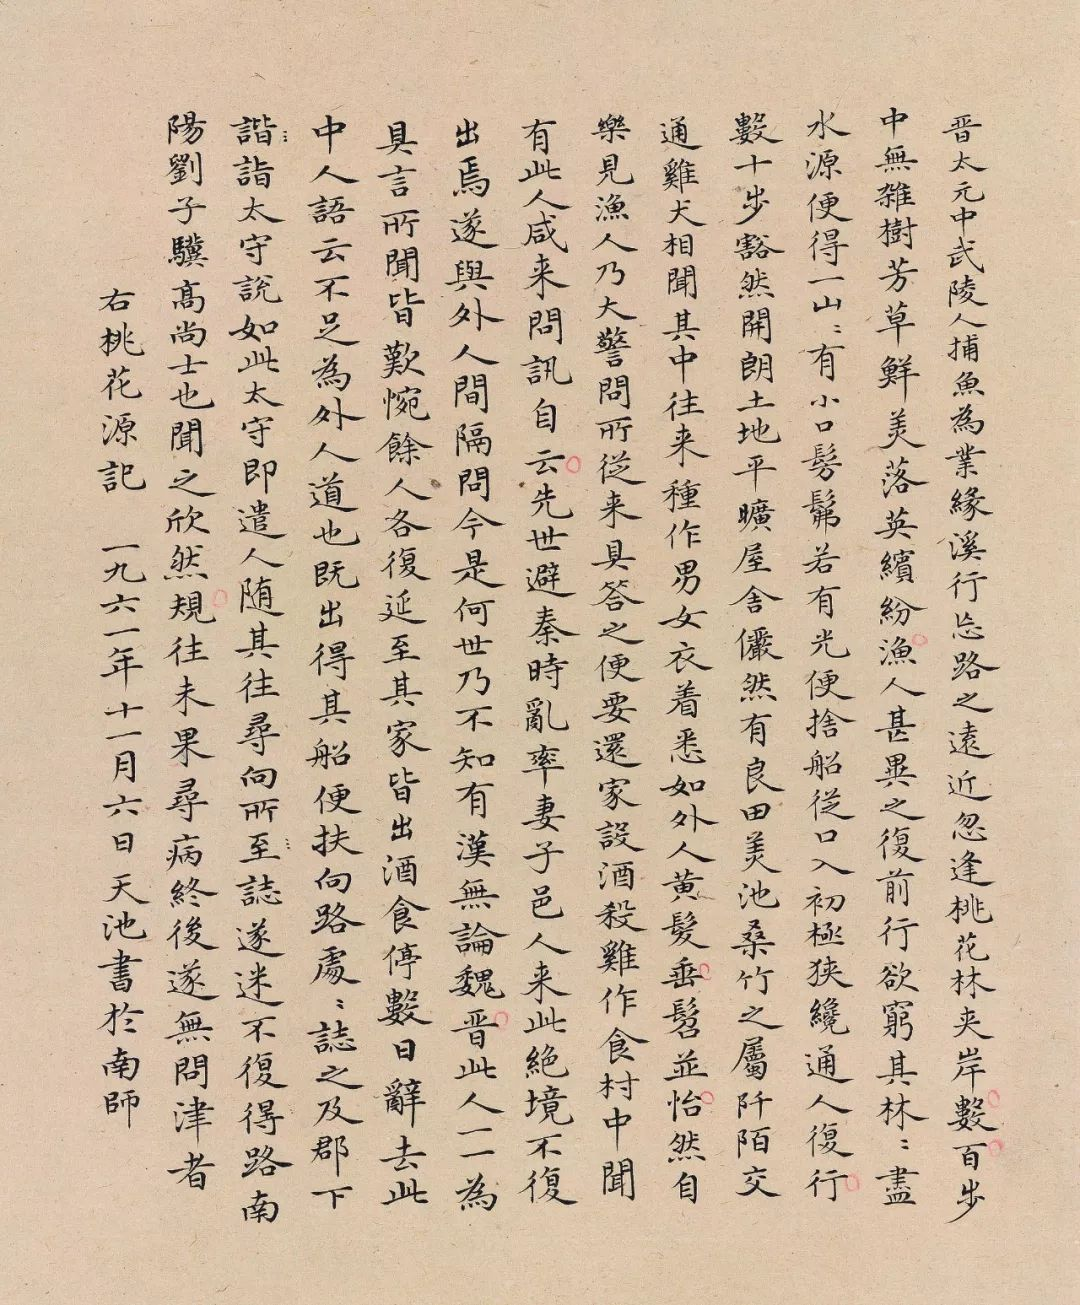 晋太元中武陵人捕魚為業緣溪行忘路之遠近忽逢桃花林夾岸數百步
中無雜樹芳草鮮美落英繽紛漁人甚異之復前行欲窮其林〻盡
水源便得一山〻有小口髣髴若有光便捨船從口入初極狹纔通人復行
數十步豁然開朗土地平曠屋舍儼然有良田美池桑竹之屬阡陌交
通雞犬相聞其中往来種作男女衣着悉如外人黃髮垂髫並怡然自
樂見漁人乃大警問所從来具答之便要還家設酒殺雞作食村中聞
有此人咸来問訊自云先世避秦時亂率妻子邑人来此絕境不復
出焉遂與外人間隔問今是何世乃不知有漢無論魏晋此人一一為
具言所聞皆歎惋餘人各復延至其家皆出酒食停數日辭去此
中人語云不足為外人道也既出得其船便扶向路處〻誌之及郡下
諧詣太守說如此太守即遣人随其往尋向所至誌遂迷不復得路南
陽劉子驥高尚士也聞之欣然規往未果尋病終後遂無問津者
右桃花源記 一九六一年十一月六日天池書於南師